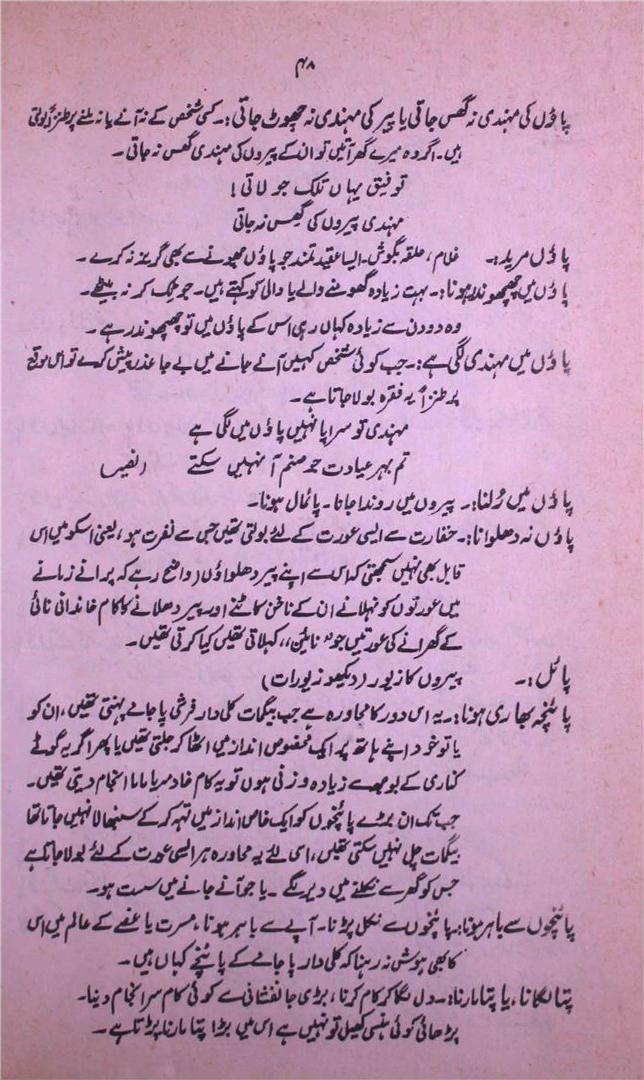 ۴۸
پاؤں کی مہندی نہ گھس جاتی یا پیر کی مہندی نہ چھوٹ جاتی:۔ کسی شخص کے نہ آنے یا نہ ملنے پر طنزاً بولتی
ہیں۔ اگر وہ میرے گھر آتیں تو ان کے پیروں کی مہندی گھس نہ جاتی۔
توفیق یہاں تلک جو لاتی!
مہندی پیروں کی گھس نہ جاتی
پاؤں مرید:۔ غلام، حلقہ بگوش۔ ایسا عقیدتمند جو پاؤں چھونے سے بھی گریز نہ کرے۔
پاؤں میں چھچھوندر ہونا:۔ بہت زیادہ گھومنے والے یا والی کو کہتے ہیں۔ جو ٹک کر نہ بیٹھے۔
وہ دو دن سے زیادہ کہاں رہی اس کے پاؤں میں تو چھچھوندر ہے۔
پاؤں میں مہندی لگی ہے:۔ جب کوئی شخص کہیں آنے جانے میں بے جا عذر پیش کرے تو اس موقع
پر طنزاً یہ فقرہ بولا جاتا ہے۔
مہندی تو سراپا نہیں پاؤں میں لگی ہے
تم بہر عیادت جو صنم آ نہیں سکتے (نفیس
پاؤں میں رُلنا:۔ پیروں میں روندا جانا۔ پائمال ہونا۔
پاؤں نہ دھلوانا:۔ حقارت سے ایسی عورت کے لئے بولتی تھیں جس سے نفرت ہو، یعنی اسکو میں اس
قابل بھی نہیں سمجھتی کہ اس سے اپنے پیر دھلواؤں (واضح رہے کہ پرانے زمانے
میں عورتوں کو نہلانے ان کے ناخن کاٹنے اور پیر دھلانے کا کام خاندانی نائی
کے گھرانے کی عورتیں جو "نائین" کہلاتی تھیں کیا کرتی تھیں۔
پائل:۔ پیروں کا زیور (دیکھو زیورات)
پائنچہ بھاری ہونا:۔ یہ اس دور کا محاورہ ہے جب بیگمات کلی دار فرشی پاجامے پہنتی تھیں، ان کو
یا تو خود اپنے ہاتھ پر ایک مخصوص انداز میں اٹھا کر چلتی تھیں یا پھر اگر یہ گوٹے
کناری کے بوجھ سے زیادہ وزنی ہوں تو یہ کام خادمہ یا ماما انجام دیتی تھیں۔
جب تک ان بڑے پائنچوں کو ایک خاص انداز میں تہہ کر کے سنبھالا نہیں جاتا تھا
بیگمات چل نہیں سکتی تھیں، اسی لئے یہ محاورہ ہر ایسی عورت کے لئے بولا جاتا ہے
جس کو گھر سے نکلنے میں دیر لگے۔ یا جو آنے جانے میں سست ہو۔
پائنچوں سے باہر ہونا:۔ پائنچوں سے نکل پڑنا۔ آپے سے باہر ہونا، مسرت یا غصے کے عالم میں اس
کا بھی ہوش نہ رہنا کہ کلی دار پاجامے کے پائنچے کہاں ہیں۔
پتا لگانا، یا پتا مارنا:۔ دل لگا کر کام کرنا، بڑی جانفشانی سے کوئی کام سرانجام دینا۔
پڑھائی کوئی ہنسی کھیل تو نہیں ہے اس میں بڑا پتا مارنا پڑتا ہے۔